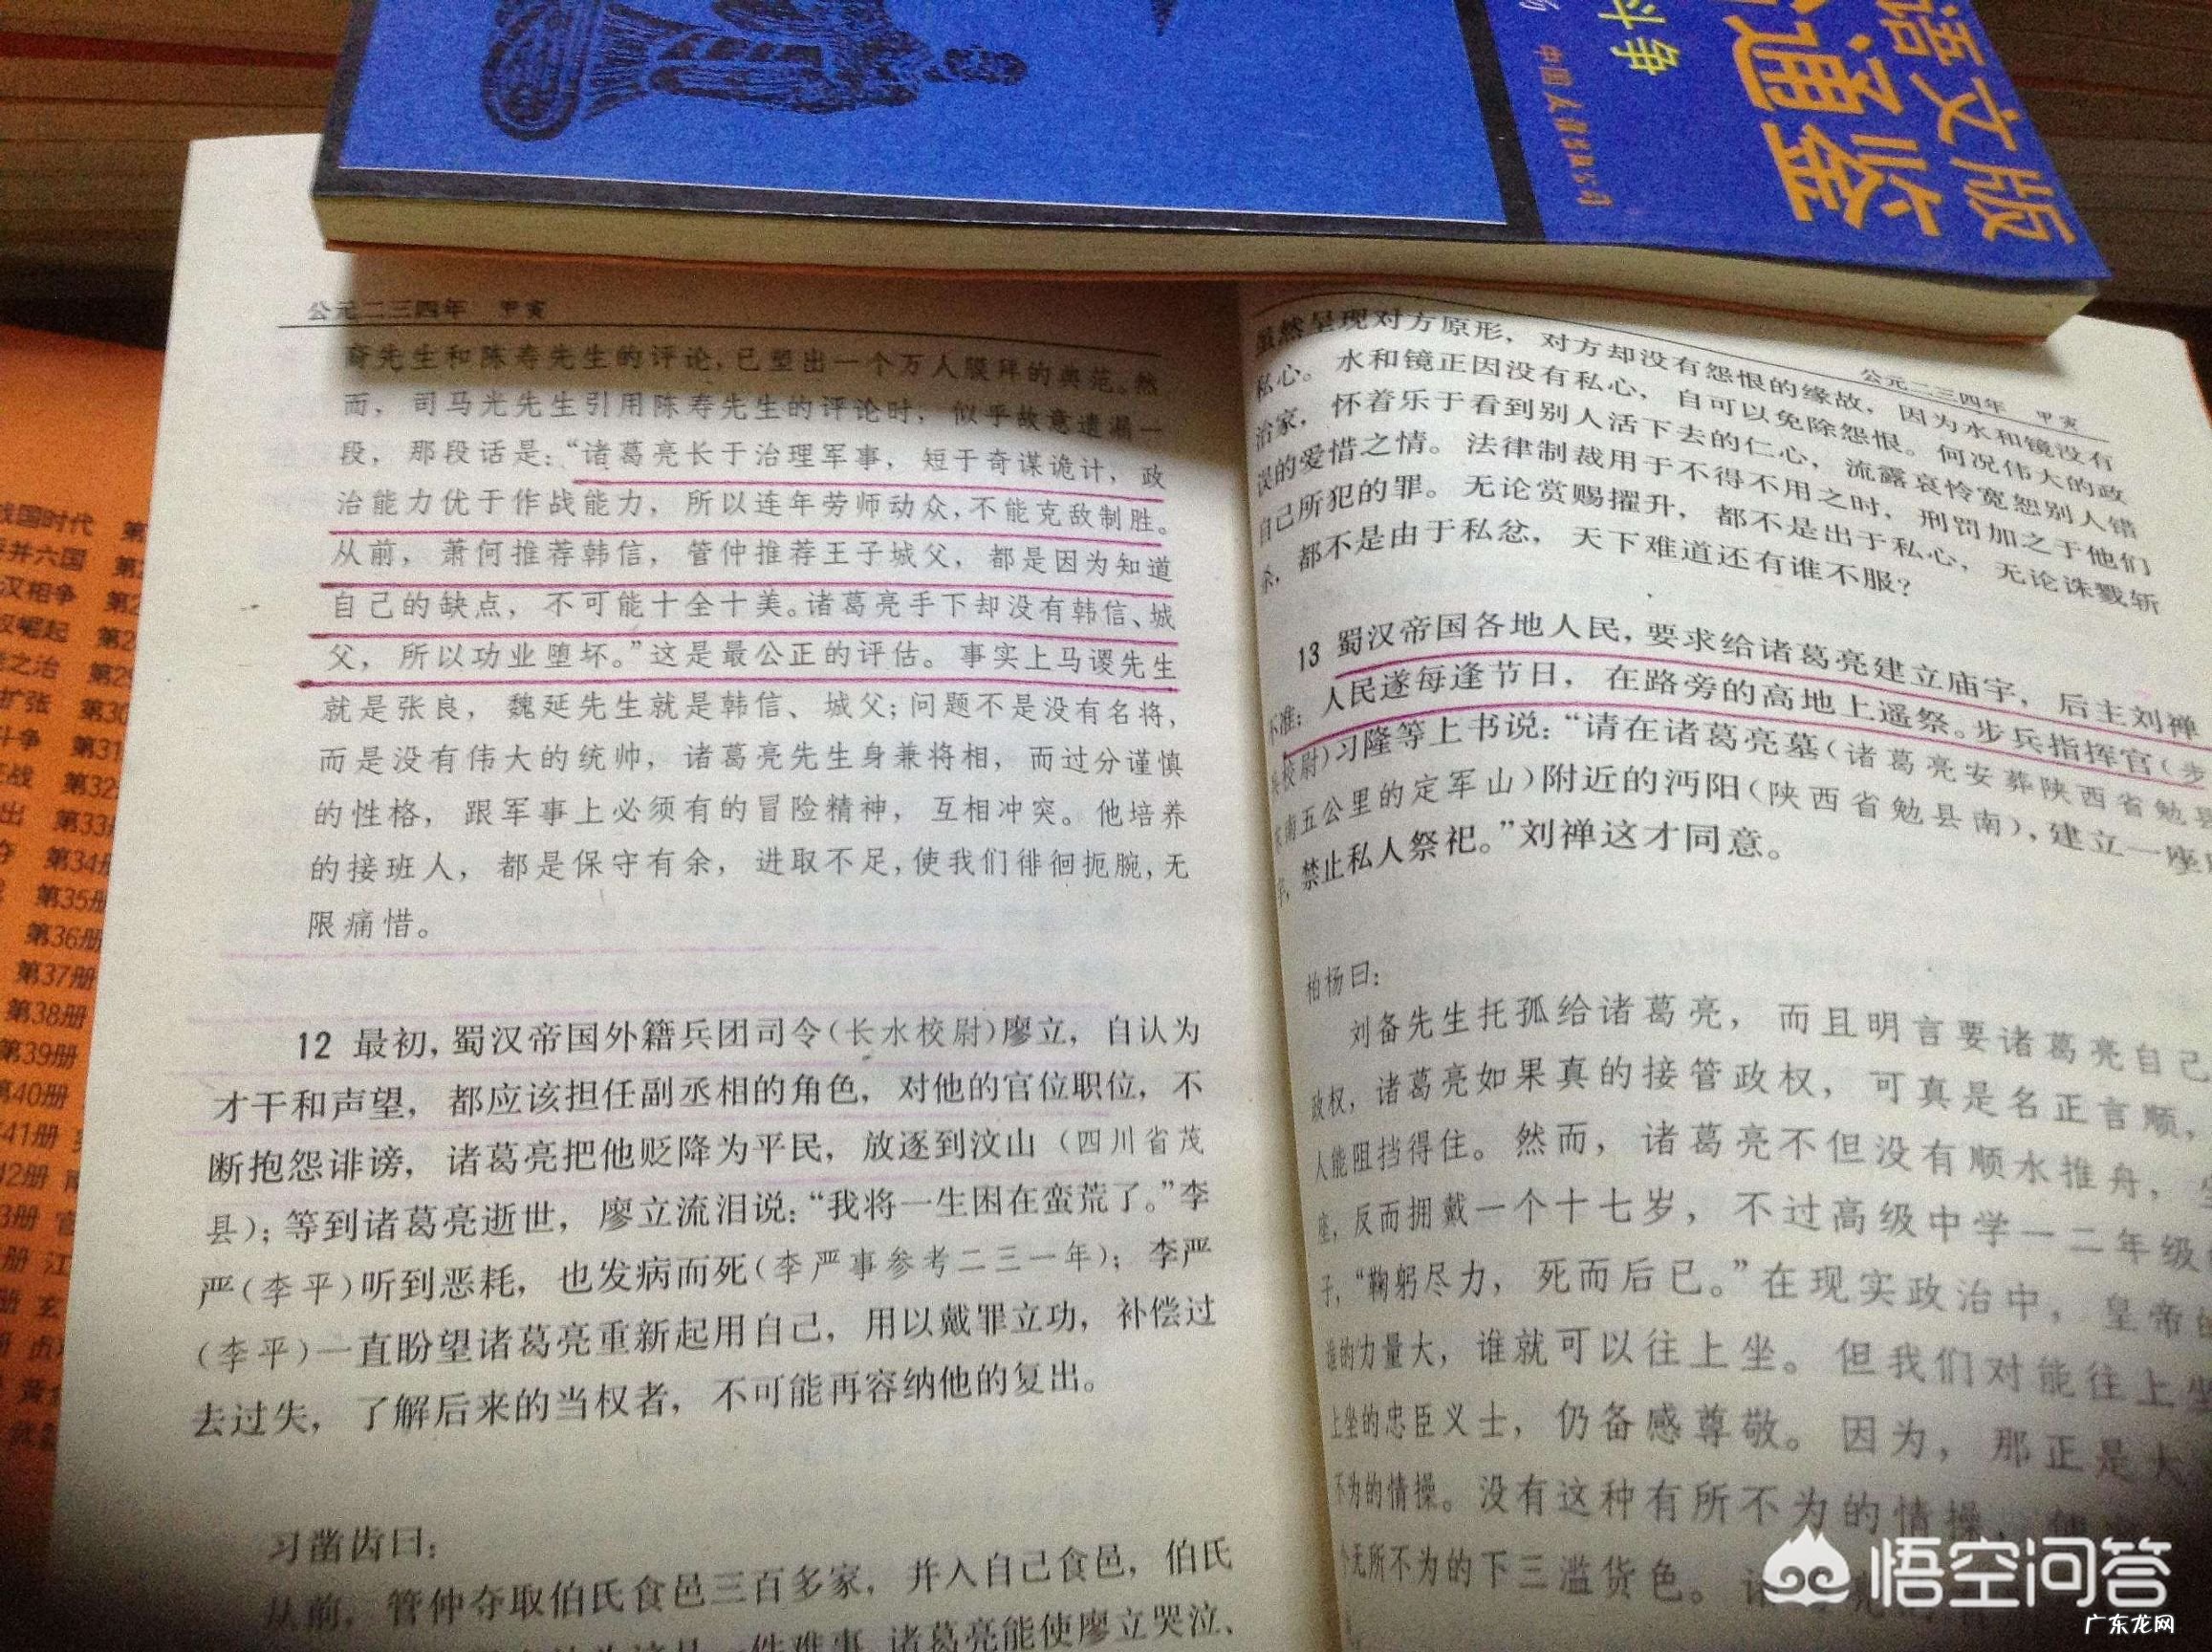 语文版
通鉴
斗争
中国人
公元二三四年 甲寅
裔先生和陈寿先生的评论,已塑出一个万人膜拜的典范。然
而,司马光先生引用陈寿先生的评论时,似乎故意遗漏一
段,那段话是:“诸葛亮长于治理军事,短于奇谋诡计,政
治能力优于作战能力,所以连年劳师动众,不能克敌制胜。
从前,萧何推荐韩信,管仲推荐王子城父,都是因为知道
自己的缺点,不可能十全十美。诸葛亮手下却没有韩信、城
父,所以功业堕坏。”这是最公正的评估。事实上马谡先生
就是张良,魏延先生就是韩信、城父;问题不是没有名将,
而是没有伟大的统帅,诸葛亮先生身兼将相,而过分谨慎
的性格,跟军事上必须有的冒险精神,互相冲突。他培养
的接班人,都是保守有余,进取不足,使我们徘徊扼腕,无
限痛惜。
12 最初,蜀汉帝国外籍兵团司令(长水校尉)廖立,自认为
才干和声望,都应该担任副丞相的角色,对他的官位职位,不
断抱怨诽谤,诸葛亮把他贬降为平民,放逐到汶山(四川省茂
县);等到诸葛亮逝世,廖立流泪说:“我将一生困在蛮荒了。”李
严(李平)听到恶耗,也发病而死(李严事参考二三一年);李严
(李平)一直盼望诸葛亮重新起用自己,用以戴罪立功,补偿过
去过失,了解后来的当权者,不可能再容纳他的复出。
习凿齿曰:
从前,管仲夺取伯氏食邑三百多家,并入自己食邑,伯氏
一件难事,诸葛亮能使廖立哭泣、
公元二三四年 甲寅
虽然呈现对方原形,对方却没有怨恨的缘故,因为水和镜没有
私心。水和镜正因没有私心,自可以免除怨恨。何况伟大的政
治家,怀着乐于看到别人活下去的仁心,流露哀怜宽恕别人错
误的爱惜之情。法律制裁用于不得不用之时,刑罚加之于他们
自己所犯的罪。无论赏赐擢升,都不是出于私心,无论诛戮斩
杀,都不是由于私忿,天下难道还有谁不服?
13 蜀汉帝国各地人民,要求给诸葛亮建立庙宇,后主刘禅
不准;人民遂每逢节日,在路旁的高地上遥祭。步兵指挥官(步
兵校尉)习隆等上书说:“请在诸葛亮墓(诸葛亮安葬陕西省勉县
东南五公里的定军山)附近的沔阳(陕西省勉县南),建立一座庙
宇,禁止私人祭祀。”刘禅这才同意。
柏杨曰:
刘备先生托孤给诸葛亮,而且明言要诸葛亮自己
政权,诸葛亮如果真的接管政权,可真是名正言顺,
人能阻挡得住。然而,诸葛亮不但没有顺水推舟,
座,反而拥戴一个十七岁,不过高级中学一二年级
子,“鞠躬尽力,死而后已。”在现实政治中,皇帝
谁的力量大,谁就可以往上坐。但我们对能往上坐
上坐的忠臣义士,仍备感尊敬。因为,那正是大
不为的情操。没有这种有所不为的情操,
个无所不为的下三滥货色。
战国时代 第
并六国 第2
汉相争 第2
权崛起 第2
之治 第29
扩张 第30
斗争 第31
第32
出 第33册
第34册
第35册
第36册
第37册
第38册
第39册
第40册
41册
42册
3册
册 江
册 玄
悟空问答
广东龙网